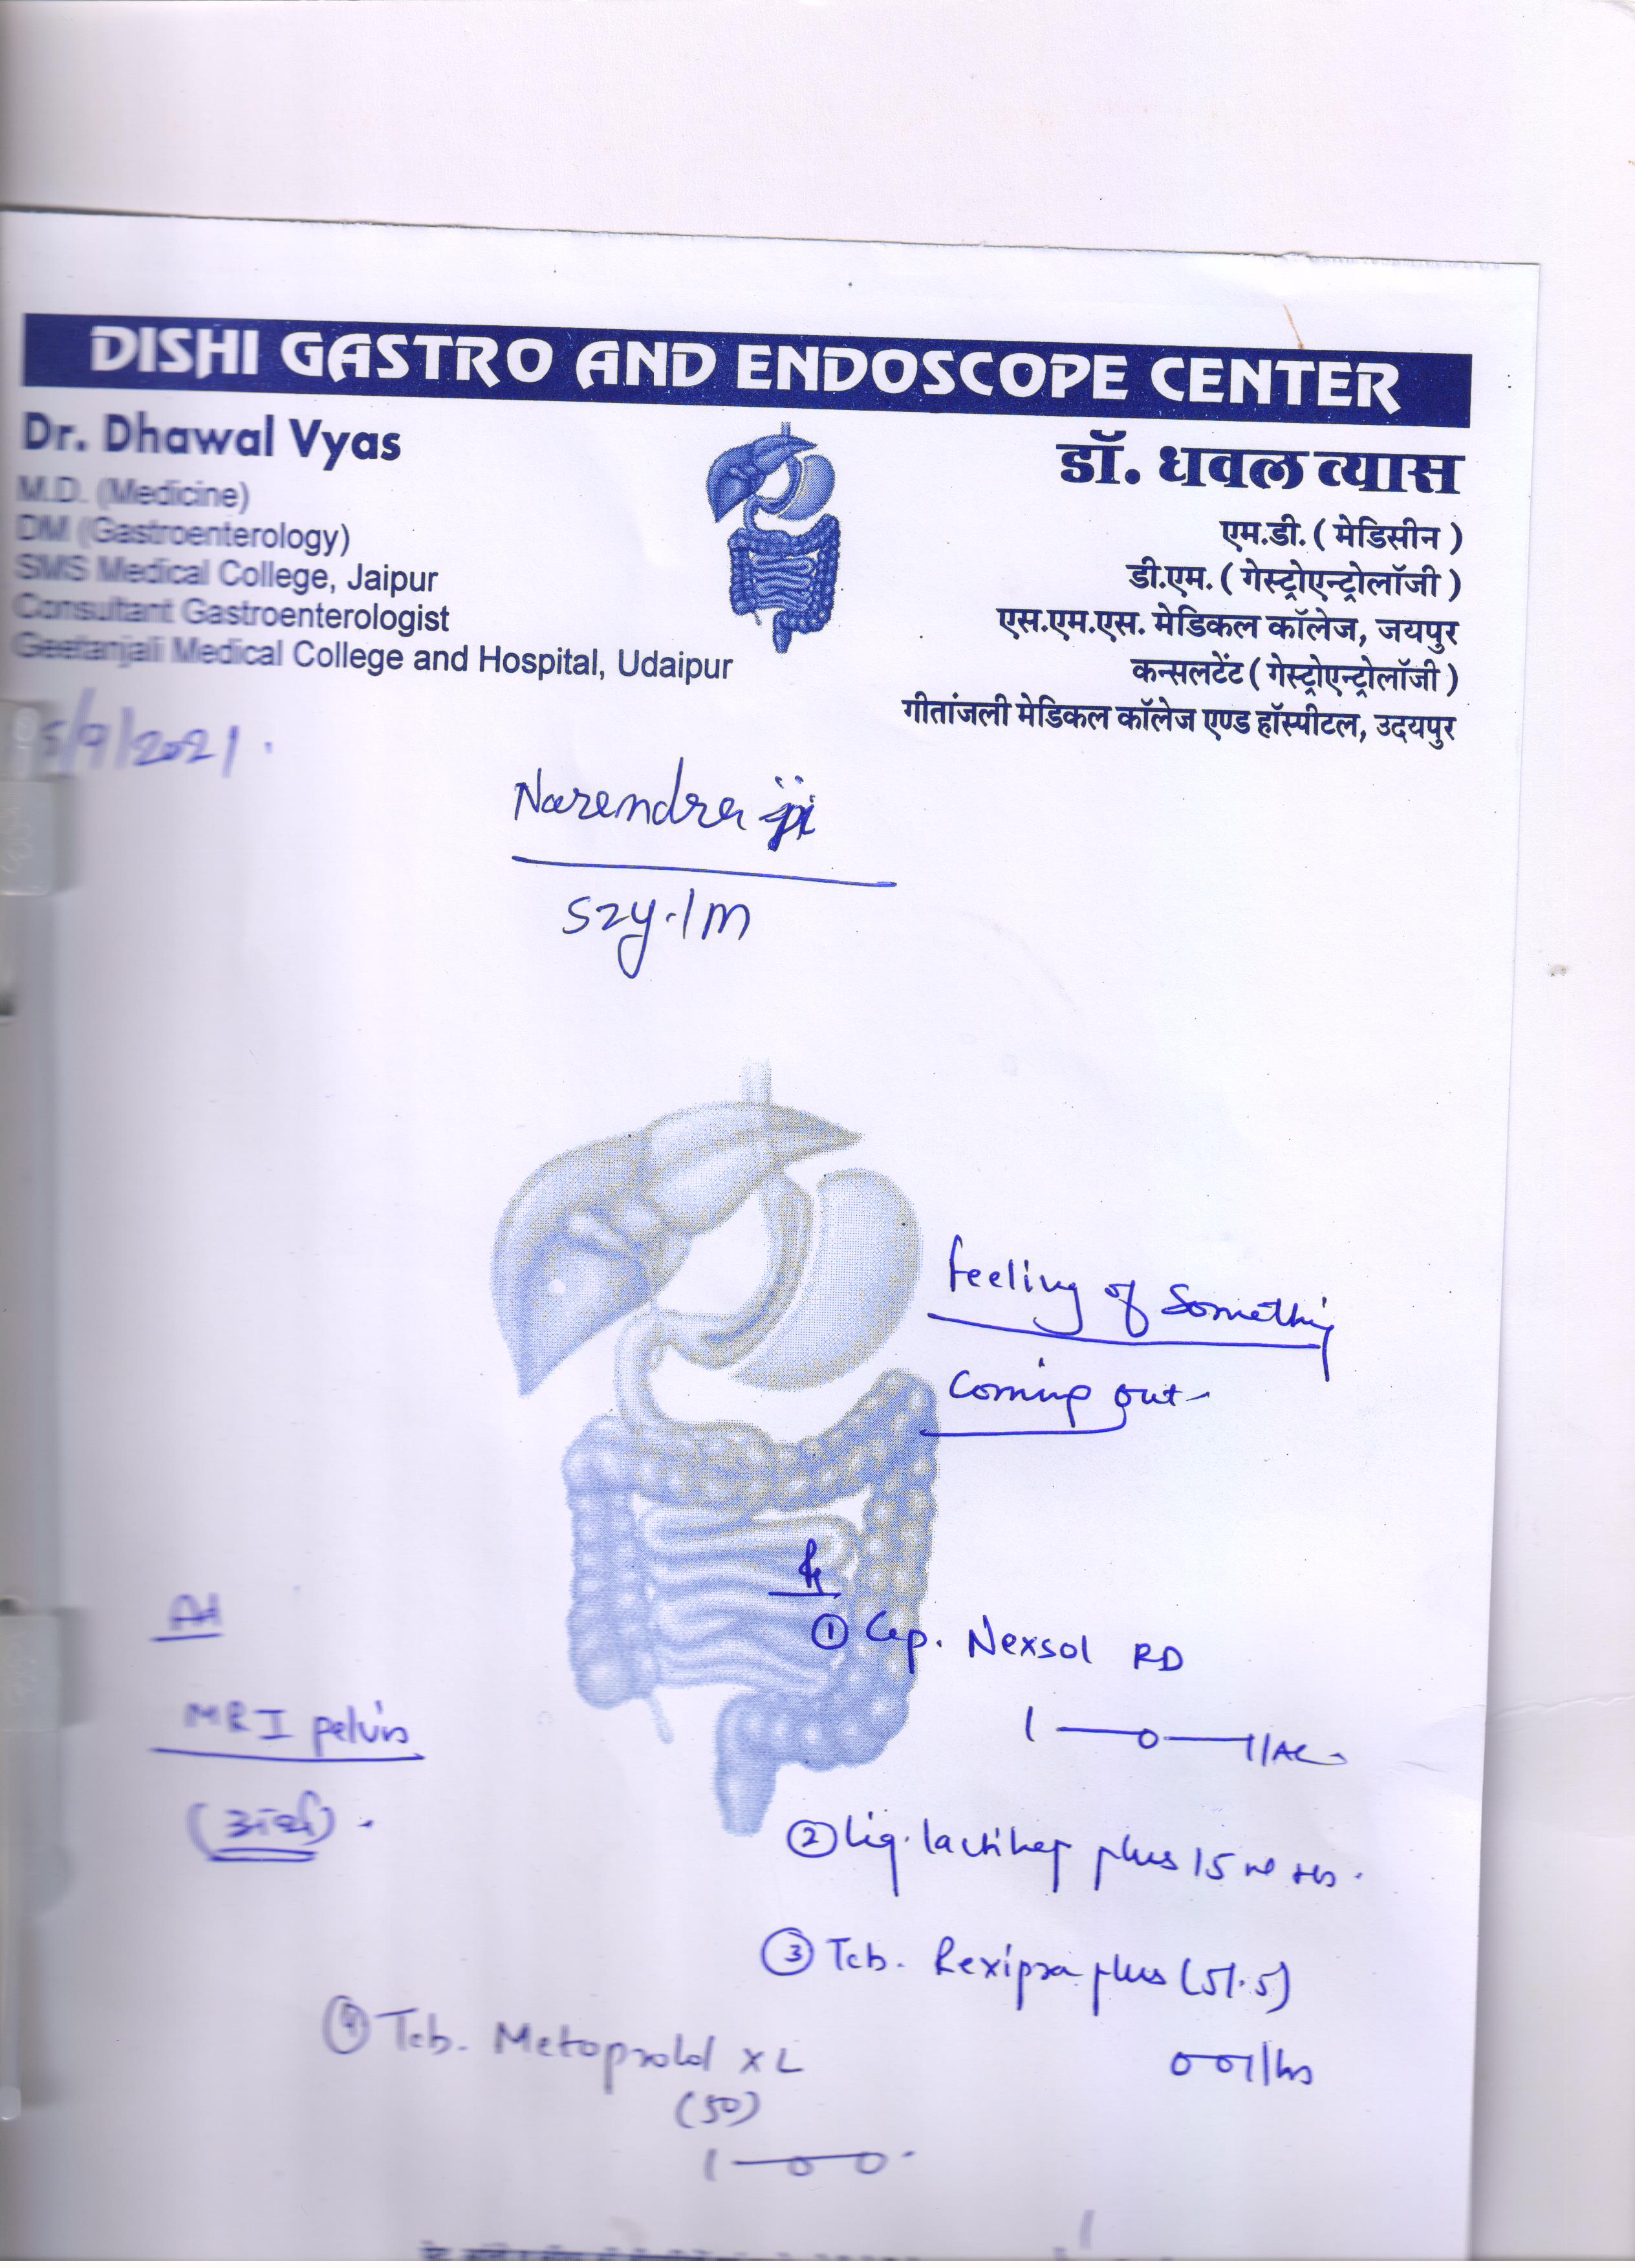 DISHI GASTRO AND ENDOSCOPE CENTER
Dr. Dhawal Vyas
M.D. (Medicine)
DM (Gastroenterology)
SMS Medical College, Jaipur
Consultant Gastroenterologist
Geetanjali Medical College and Hospital, Udaipur
डॉ. धवल व्यास
एम.डी. ( मेडिसीन )
डी.एम. ( गेस्ट्रोएन्ट्रोलॉजी )
एस.एम.एस. मेडिकल कॉलेज, जयपुर
कन्सलटेंट ( गेस्ट्रोएन्ट्रोलॉजी )
गीतांजली मेडिकल कॉलेज एण्ड हॉस्पीटल, उदयपुर
5/9/2021
Narendra ji
52y/M
feeling of Something
Coming out
Rx
① Cap. Nexsol RD
1—0—1/AC
Ad
MRI pelvis
② Liq. lactihep plus 15 ml HS
③ Tab. Rexipra plus (5/.5)
0 0 1/hs
④ Tab. Metoprolol XL
(50)
1—0—0